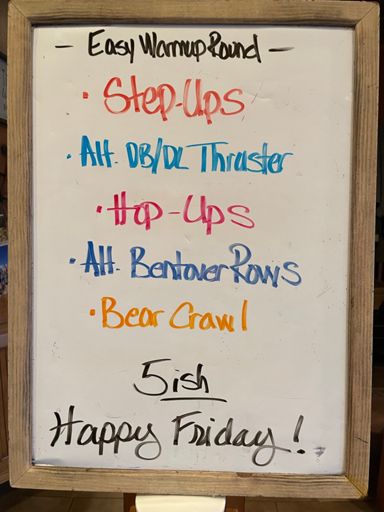 - Easy Warmup Round -
· Step-Ups
· Alt. DB/DL Thruster
· Hop-Ups
· Alt. Bentover Rows
· Bear Crawl
5ish
Happy Friday!